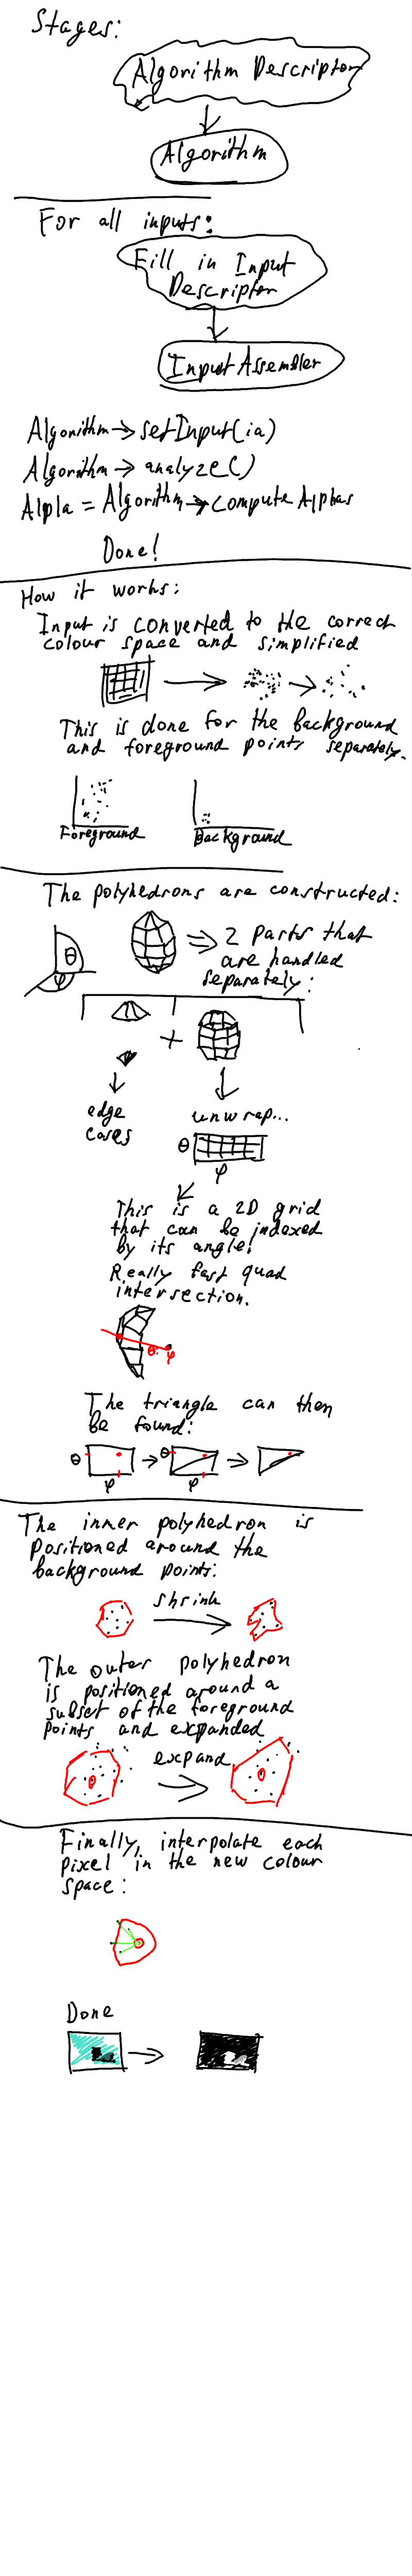 Stages:
Algorithm Descriptor
Algorithm
For all inputs:
Fill in Input
Descriptor
Input Assembler
Algorithm → setInput(ia)
Algorithm → analyze()
Alpla = Algorithm → Compute Alphas
Done!
How it works:
Input is converted to the correct
colour space and simplified
This is done for the background
and foreground points separately.
Foreground
Background
The polyhedrons are constructed:
θ
φ
⇒ 2 parts that
are handled
separately:
+
edge
cases
unwrap...
θ
φ
This is a 2D grid
that can be indexed
by its angle!
Really fast quad
intersection.
θ φ
The triangle can then
be found:
θ
φ
θ
φ
The inner polyhedron is
positioned around the
background points:
shrink
The outer polyhedron
is positioned around a
subset of the foreground
points and expanded
expand
Finally, interpolate each
pixel in the new colour
space:
Done